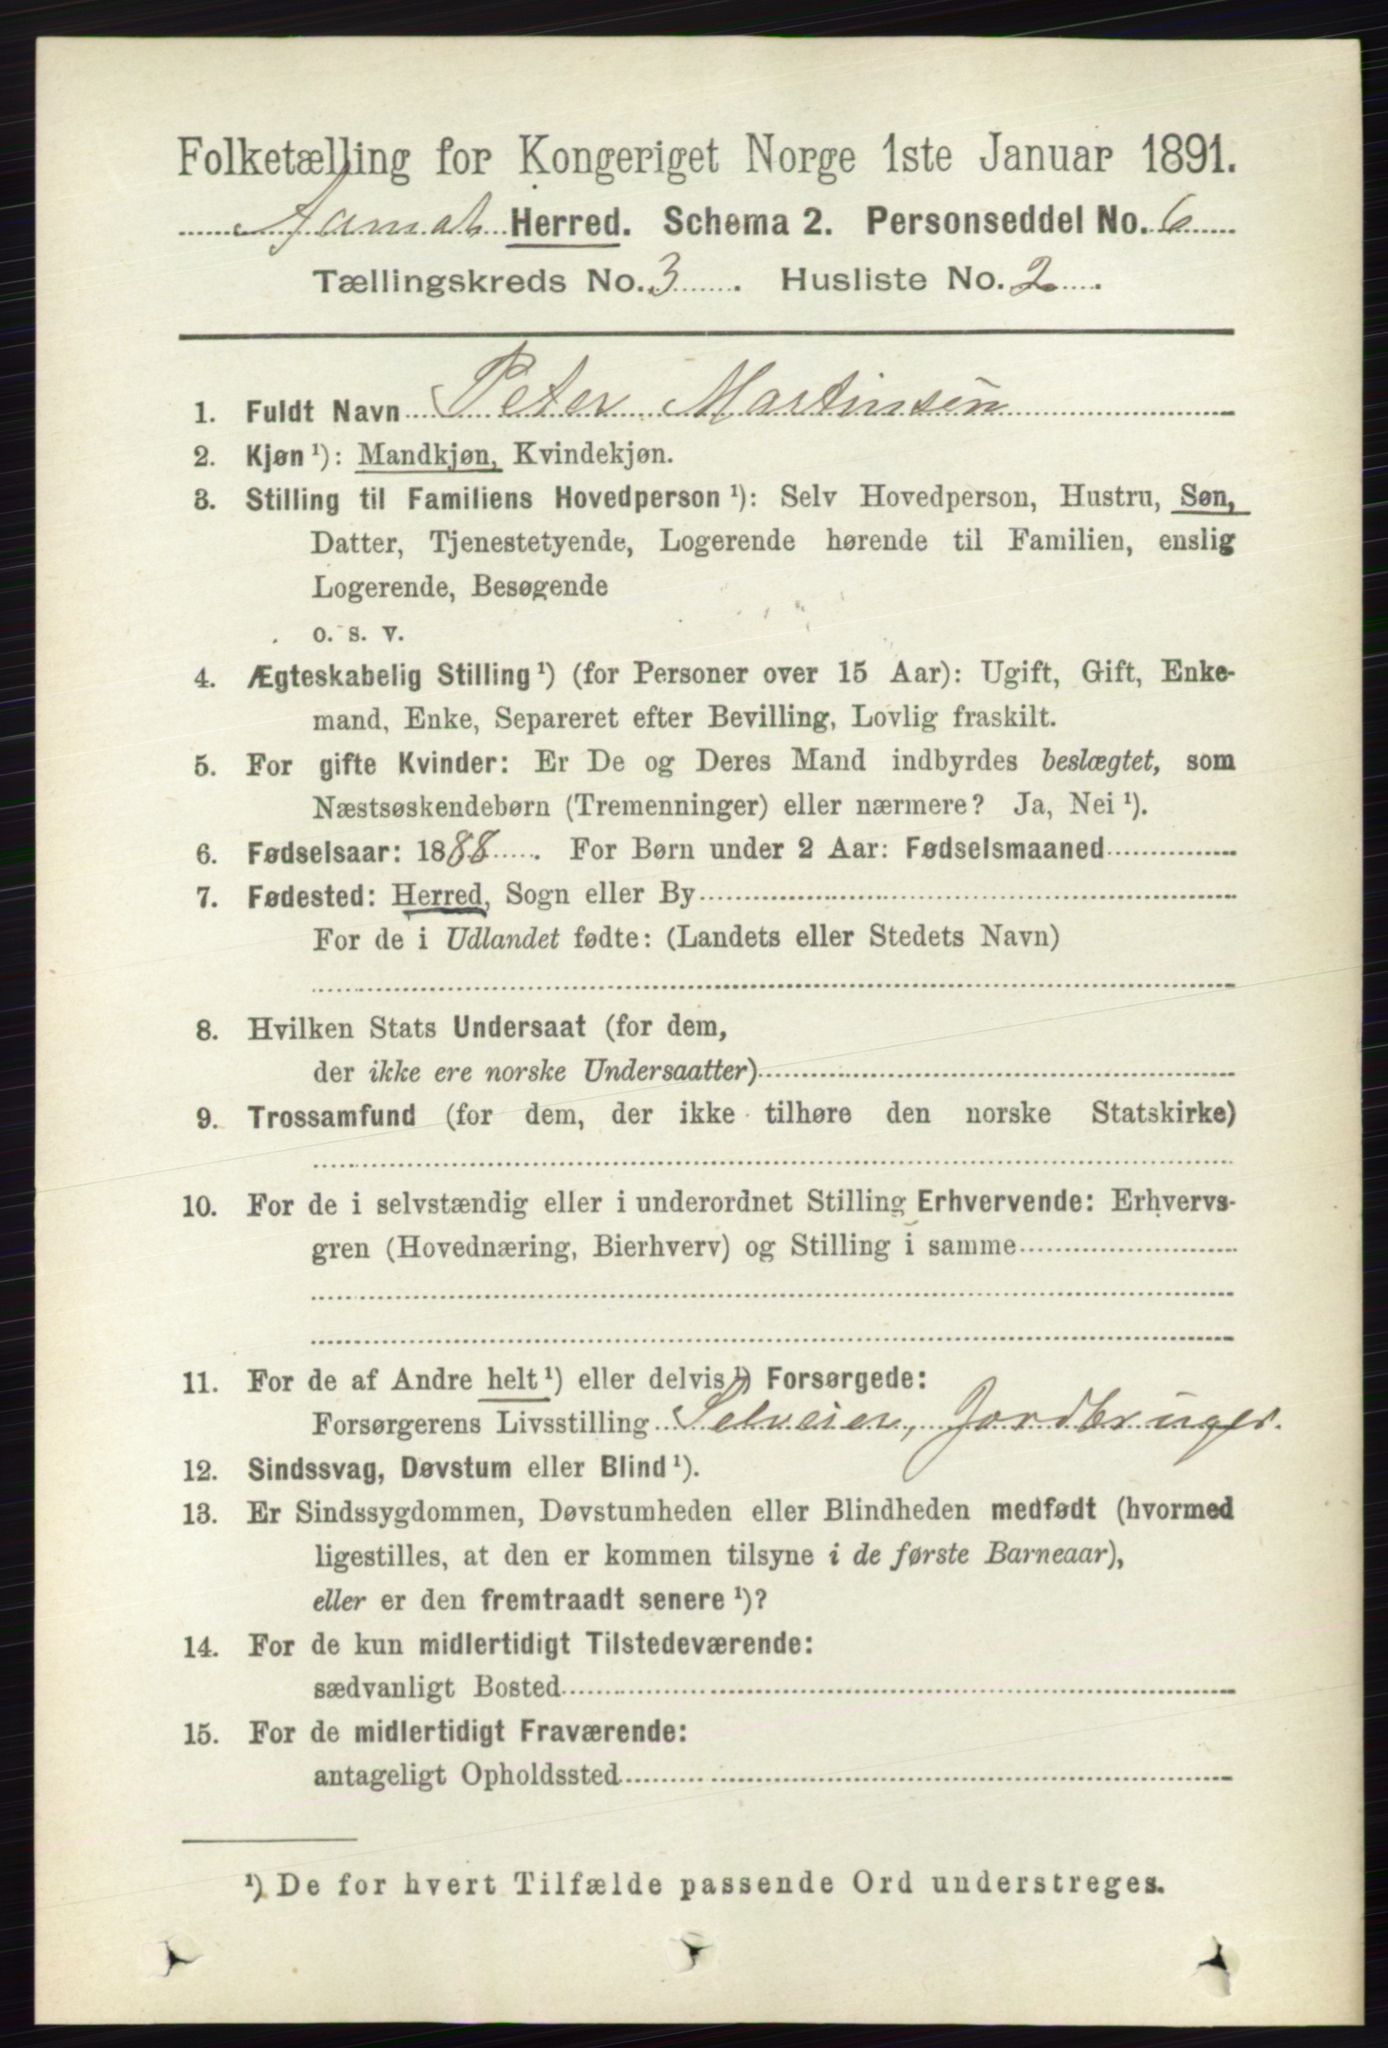 Folketælling for Kongeriget Norge 1ste Januar 1891.
Aamot Herred. Schema 2. Personseddel No. 6
Tællingskreds No. 3. Husliste No. 2.
1. Fuldt Navn Peter Martinsen
2. Kjøn ¹): Mandkjøn, Kvindekjøn.
3. Stilling til Familiens Hovedperson ¹): Selv Hovedperson, Hustru, Søn,
Datter, Tjenestetyende, Logerende hørende til Familien, enslig
Logerende, Besøgende
o. s. v.
4. Ægteskabelig Stilling ¹) (for Personer over 15 Aar): Ugift, Gift, Enke-
mand, Enke, Separeret efter Bevilling, Lovlig fraskilt.
5. For gifte Kvinder: Er De og Deres Mand indbyrdes beslægtet, som
Næstsøskendebørn (Tremenninger) eller nærmere? Ja, Nei ¹).
6. Fødselsaar: 1888. For Børn under 2 Aar: Fødselsmaaned
7. Fødested: Herred, Sogn eller By
For de i Udlandet fødte: (Landets eller Stedets Navn)
8. Hvilken Stats Undersaat (for dem,
der ikke ere norske Undersaatter)
9. Trossamfund (for dem, der ikke tilhøre den norske Statskirke)
10. For de i selvstændig eller i underordnet Stilling Erhvervende: Erhvervs-
gren (Hovednæring, Bierhverv) og Stilling i samme
11. For de af Andre helt ¹) eller delvis ¹) Forsørgede:
Forsørgerens Livsstilling Selveier, Jordbruger.
12. Sindssvag, Døvstum eller Blind ¹).
13. Er Sindssygdommen, Døvstumheden eller Blindheden medfødt (hvormed
ligestilles, at den er kommen tilsyne i de første Barneaar),
eller er den fremtraadt senere ¹)?
14. For de kun midlertidigt Tilstedeværende:
sædvanligt Bosted
15. For de midlertidigt Fraværende:
antageligt Opholdssted
¹) De for hvert Tilfælde passende Ord understreges.